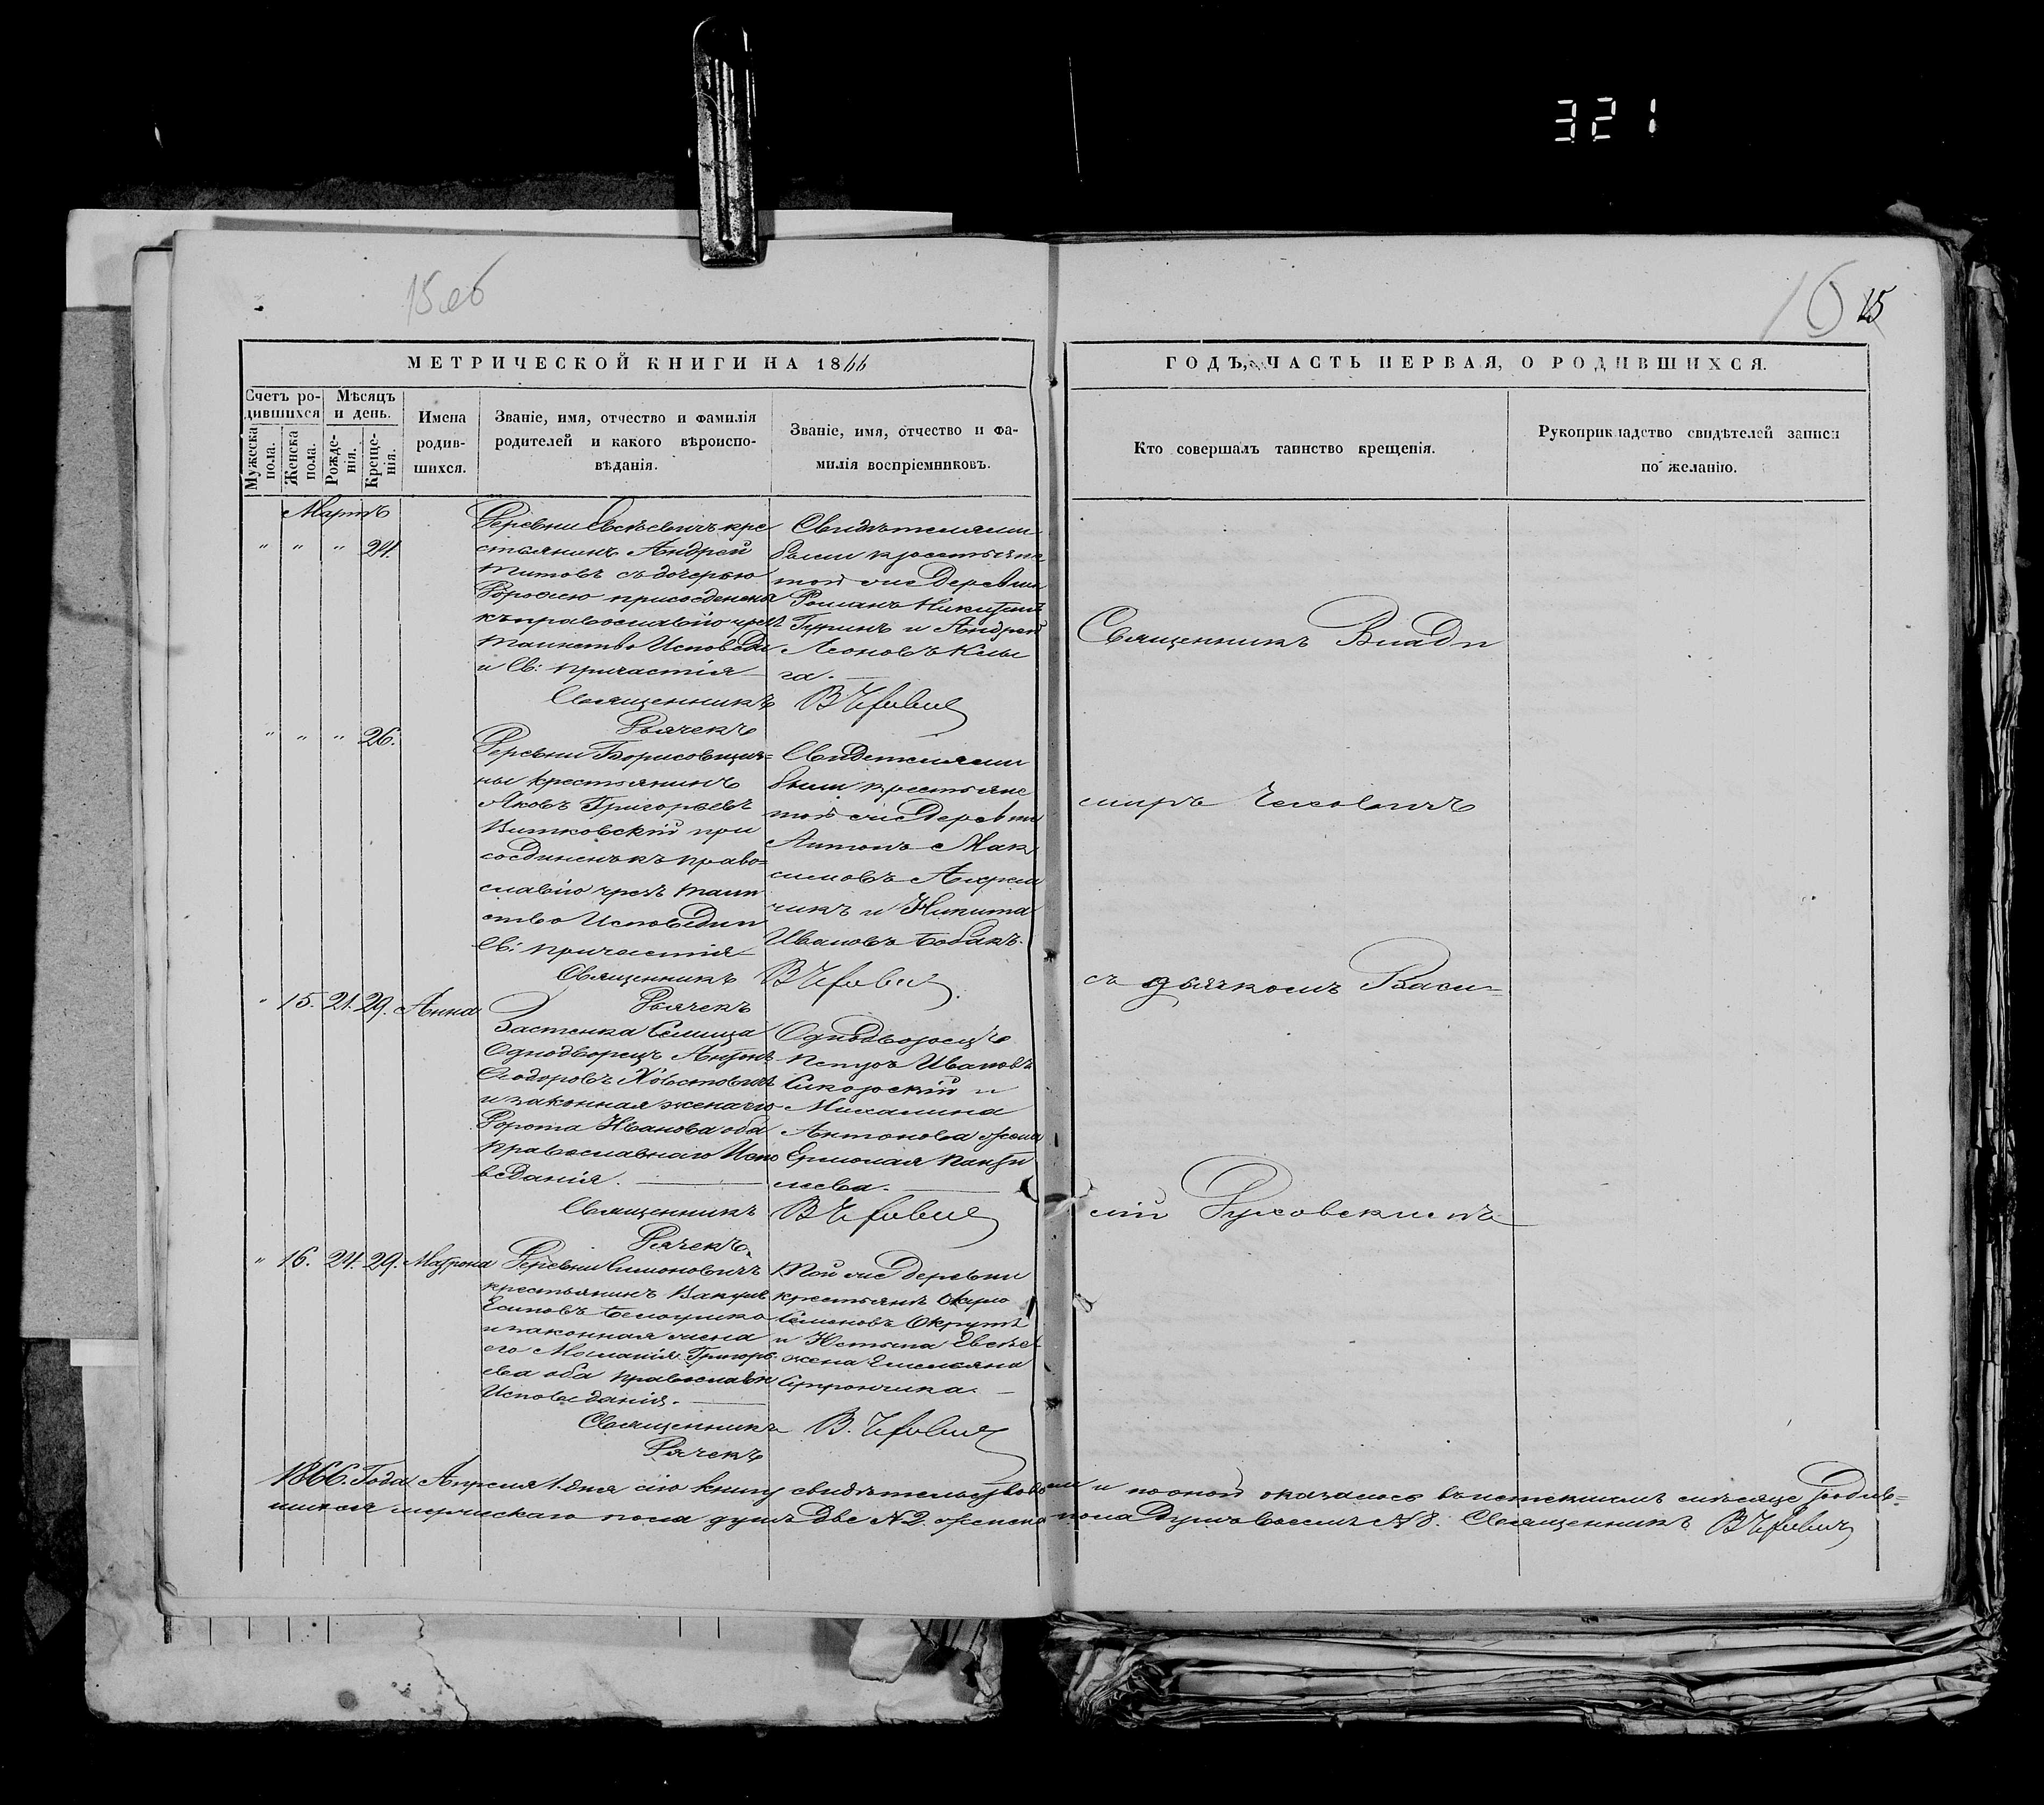 321
15 об
16 15
МЕТРИЧЕСКОЙ КНИГИ НА 1866
ГОДЪ, ЧАСТЬ ПЕРВАЯ, О РОДИВШИХСЯ.
Счетъ родившихся
Мужеска пола.
Женска пола.
Мѣсяцъ и день.
Рожденія.
Крещенія.
Имена родившихся.
Званіе, имя, отчество и фамилія
родителей и какого вѣроиспо-
вѣданія.
Званіе, имя, отчество и фа-
милія воспріемниковъ.
Кто совершалъ таинство крещенія.
Рукоприкладство свидѣтелей записи
по желанію.
Мартъ
" " " 24.
Деревни Евсѣевичъ кре
стьянинъ Андрей
Титовъ съ дочерью
присоединены
къ православію чрезъ
таинство Исповѣди
и Св: причастія
Свидѣтелями
были крестьяне
той же деревни
Романъ Никитинъ
Гуринъ и Андрей
Леоновъ Клы
га.
Священникъ
Дьячекъ
" " " 26.
Деревни Борисовщиз=
ны крестьянинъ
Яковъ Григорьевъ
Витковскій при
соединенъ къ право=
славію чрезъ таин
ство Исповѣди и
Св: причастія
Свидетелями
были крестьяне
той же деревни
Антонъ Мак
симовъ
чикъ и Никита
Ивановъ Бобакъ.
Священникъ
Дьячекъ
" 15. 21. 29. Анна
Застенка Селища
Однодворецъ Антонъ
Ѳеодоровъ
и законная жена его
Иванова оба
православнаго Испо
веданія.
Однодворецъ
Петръ Ивановъ
Сикорскій и
Михалина
Антонова жена
Ермолая
леева.
Священникъ
Дьячекъ
" 16. 24. 29. Матрона
Деревни Симоновичъ
крестьянинъ
Есиповъ
и законная жена
его Меланія Григорь
ева оба православн
Исповеданія.
Той же деревни
крестьянъ Карпо
Семеновъ
и Юстына Евсѣев
жена Емельяна
Священникъ
Дьячекъ
Священникъ Влади
миръ Чеховичъ
съ дьячкомъ Васи=
лій
1866. Года Апреля 1. дня сію книгу свидѣтельствовалъ и по оной оказалось въ истекшемъ мѣсяце родив=
шихся мужескаго пола душъ две №2. женска пола душъ восемь №8. Священникъ